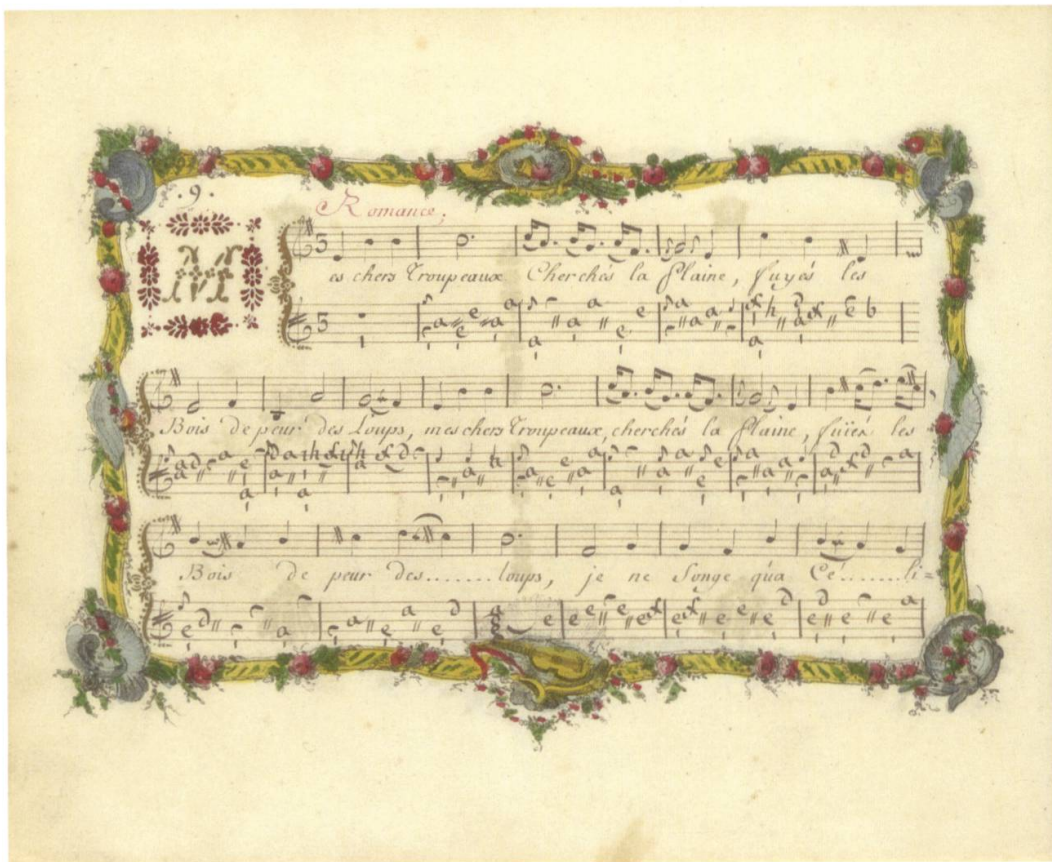 .9.
Romance;
M
es chers Troupeaux Cherchés la Plaine, fuyés les
Bois de peur des Loups, mes chers Troupeaux, cherchés la Plaine, fuïés les
Bois de peur des.......loups, je ne Songe qu'a Cé.......li=